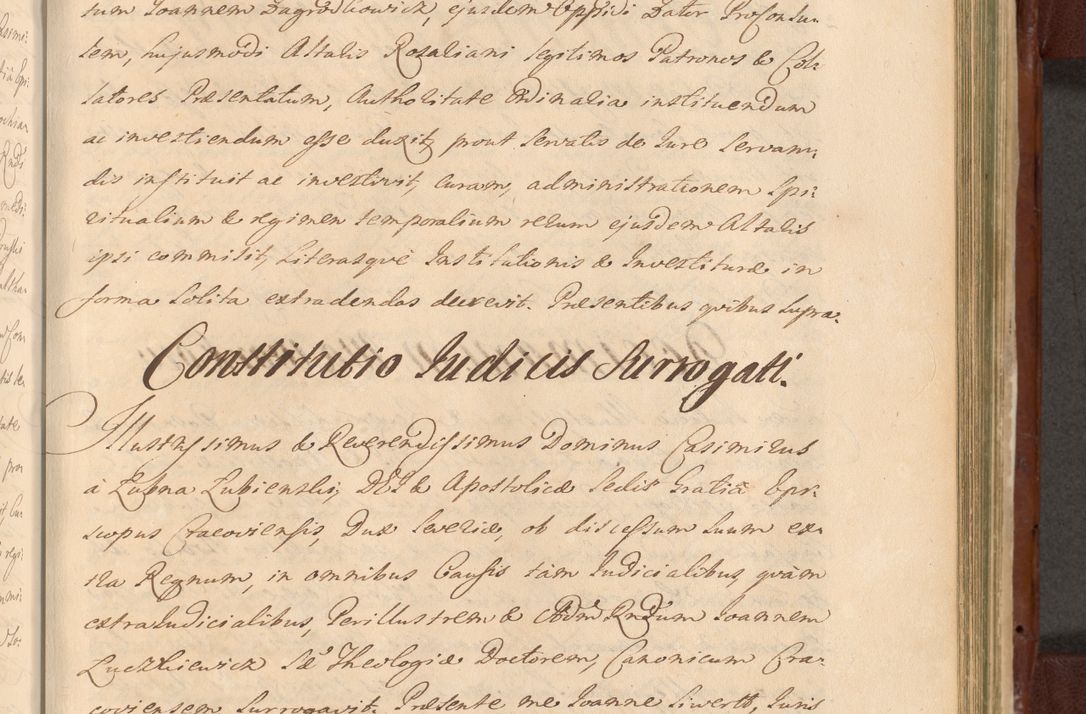 tum Joannem Zagrodkowicz, ejusdem Oppidi Dator Profonsu-
lem, hujusmodi Altalis Rozaliani legitimos Patronos & Col-
latores Præsentatum, Authoritate Ordinaria instituendum
ac investiendum esse duxit, prout servatis de Jure servan-
dis instituit ac investivit, curam, administrationem Spi-
ritualium & regimen temporalium rerum ejusdem Altaris
ipsi commisit, Literasque Institutionis & Investituræ in
forma solita extradendas decrevit. Præsentibus quibus supra.
Constitutio Judicis Surrogati.
Illustrissimus & Reverendissimus Dominus Casimirus
à Łubna Łubienski, DEI & Apostolicæ Sedis Gratiâ Epi-
scopus Cracoviensis, Dux Severiæ, ob discessum suum ex-
tra Regnum, in omnibus Causis tàm Judicialibus, quàm
extraJudicialibus, Perillustrem & Adm Rndum Joannem
Luczkiewicz Sæ Theologiæ Doctorem, Canonicum Cra-
coviensem Surrogavit. Præsente me Joanne Siwertt, Juris